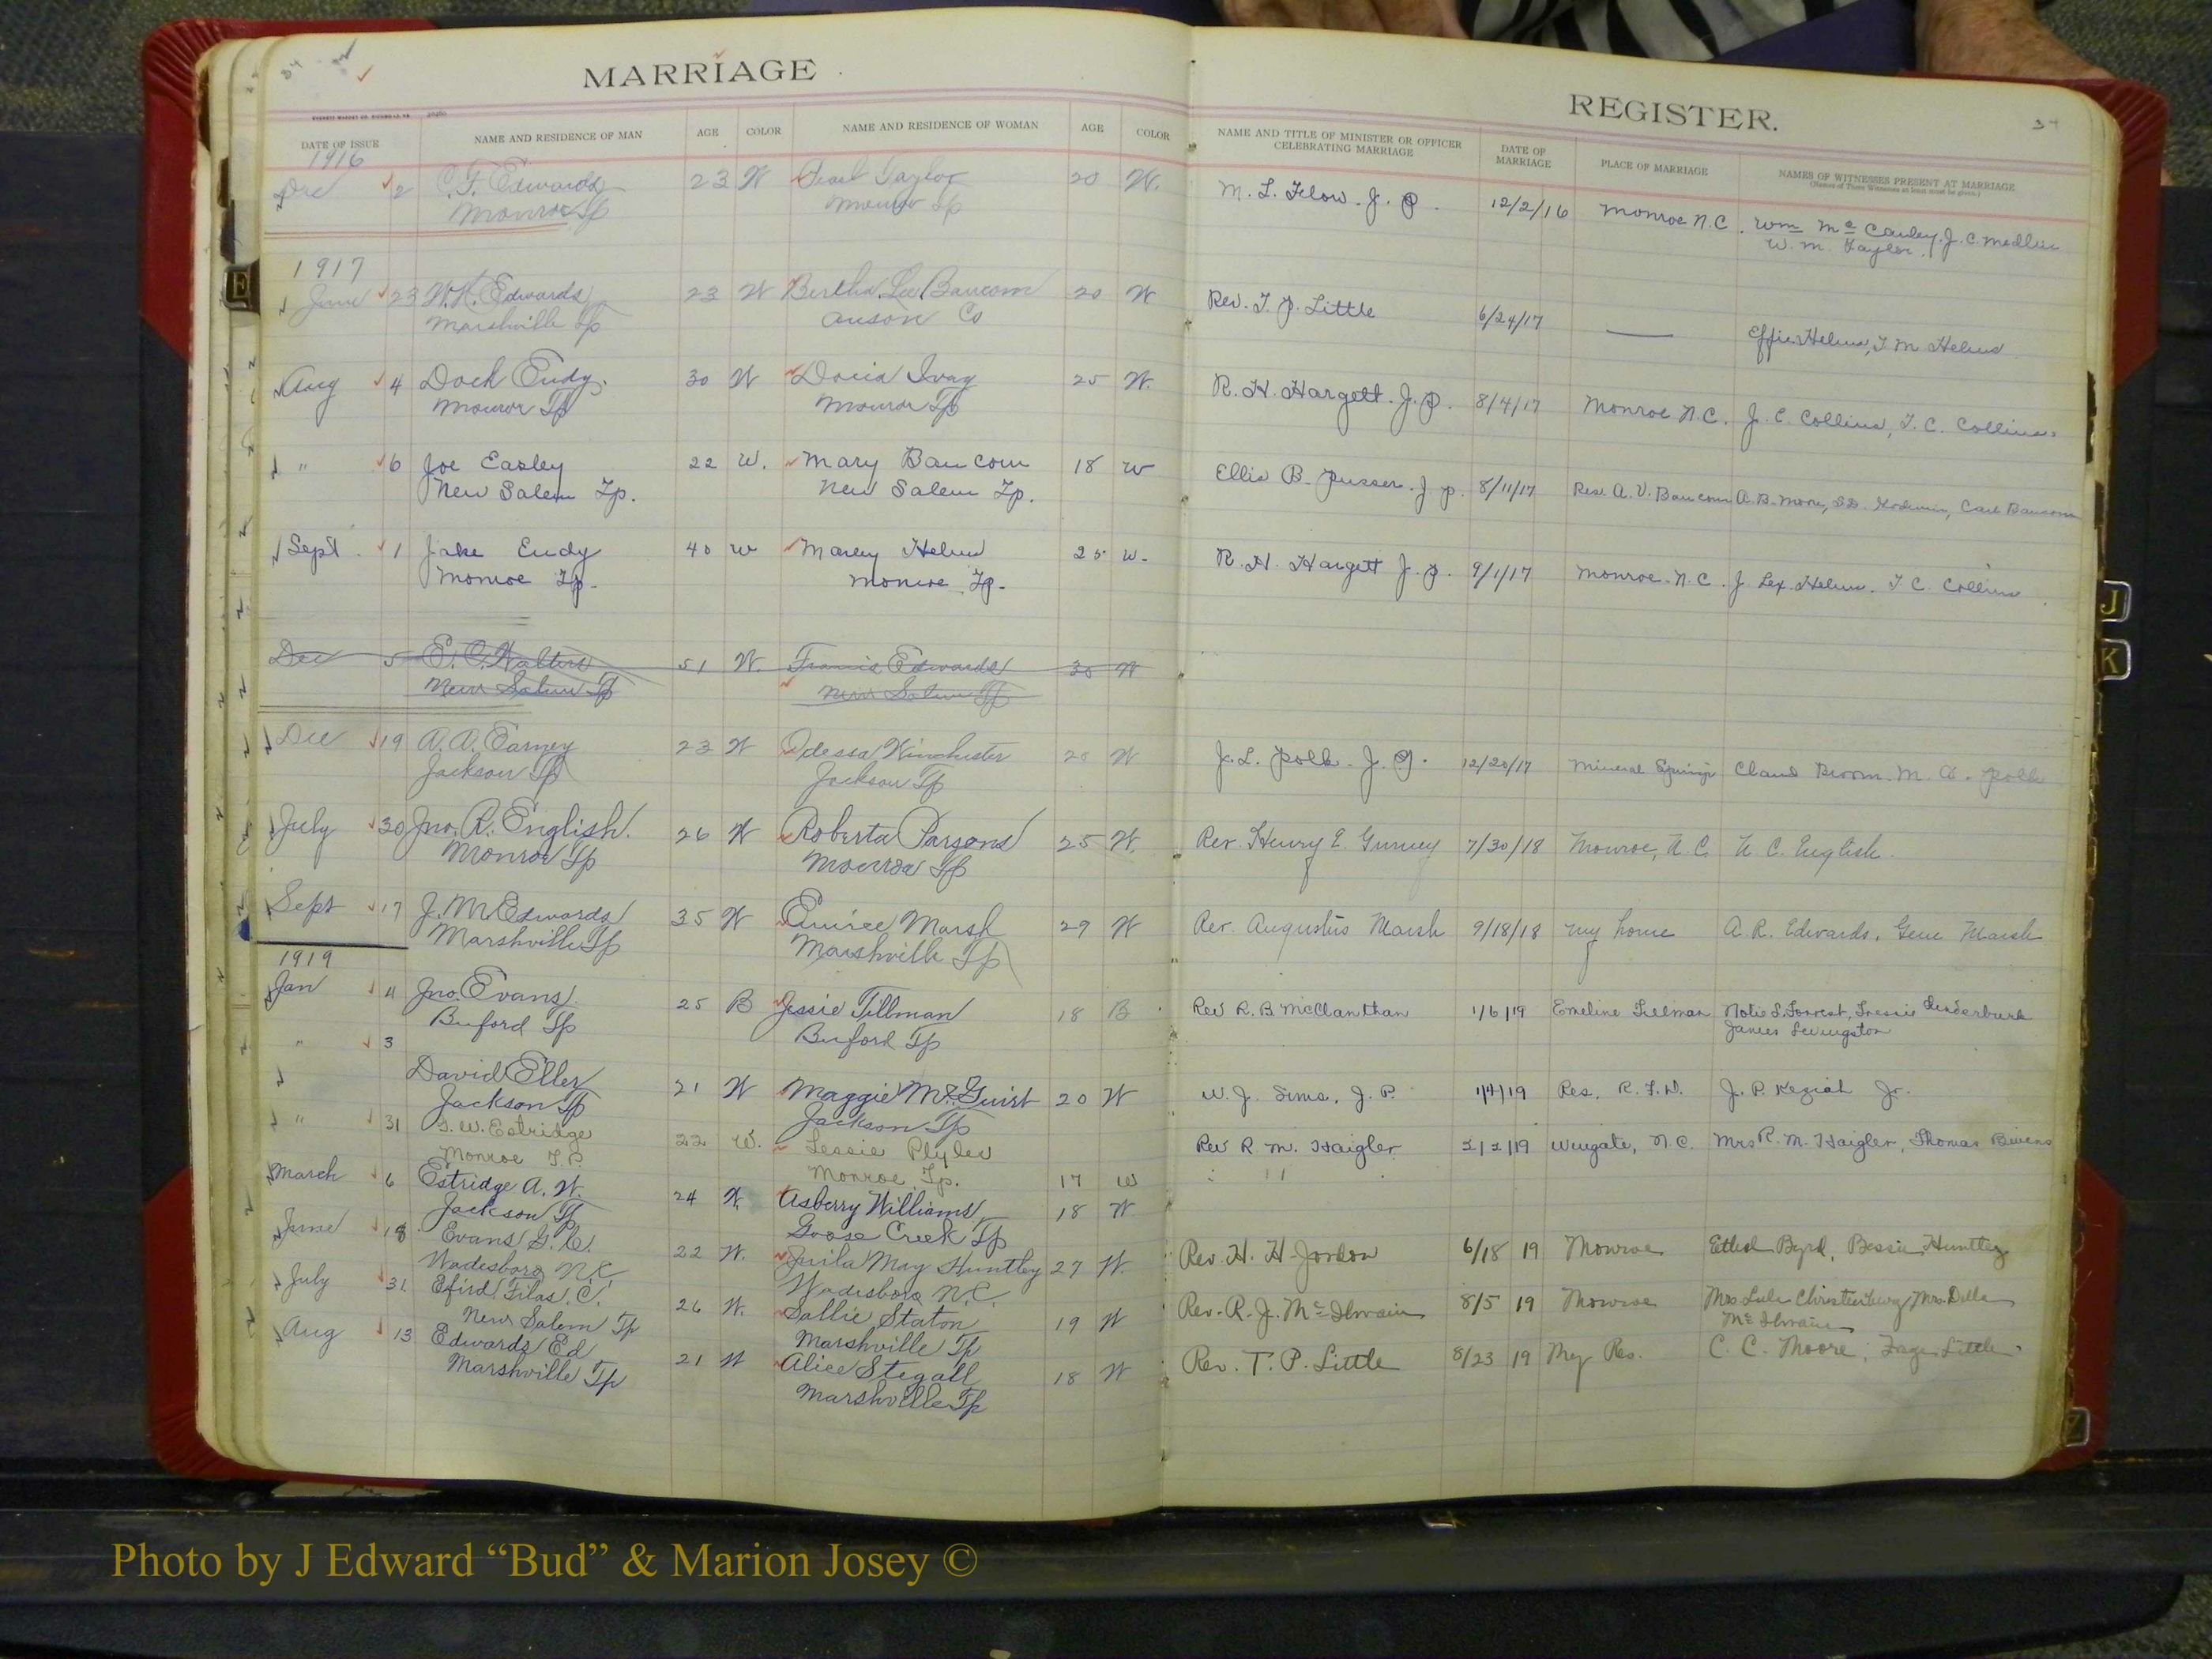 MARRIAGE
REGISTER.
34
34
DATE OF ISSUE
NAME AND RESIDENCE OF MAN
AGE
COLOR
NAME AND RESIDENCE OF WOMAN
AGE
COLOR
NAME AND TITLE OF MINISTER OR OFFICER
CELEBRATING MARRIAGE
DATE OF
MARRIAGE
PLACE OF MARRIAGE
NAMES OF WITNESSES PRESENT AT MARRIAGE
(Names of Three Witnesses at least must be given.)
1916
Dec 2 C. F. Edwards 23 W Pearl Taylor 20 W. M. L. Flow. J. P. 12/2/16 Monroe N.C. Wm Mc Cauley, J. C. Medlin
Monroe Tp Monroe Tp W. M. Taylor.
1917
June 23 W. H. Edwards 23 W Bertha Lee Baucom 20 W Rev. T. P. Little 6/24/17 — Effie Helms, T M Helms
Marshville Tp Anson Co
Aug 4 Dock Eudy. 30 W Docia Ivey 25 W. R. H. Hargett. J. P. 8/4/17 Monroe N.C. J. E. Collins, T. C. Collins.
Monroe Tp Monroe Tp
" 6 Joe Easley 22 W. Mary Baucom 18 W Ellis B. Pusser. J P. 8/11/17 Res. A. V. Baucom A. B. Moore, Carl Baucom
New Salem Tp. New Salem Tp.
Sept. 1 Jake Eudy 40 W Helms 25 W. R. H. Hargett J. P. 9/1/17 Monroe N.C. J Lex Helms. T C Collins
Monroe Tp. Monroe Tp.
Dec 5 E. C. Walters 51 W. Francis Edwards 30 W
New Salem Tp New Salem Tp
Dec 19 A. A. Earney 23 W Odessa Winchester 20 W J. L. Polk. J. P. 12/20/17 Mineral Springs Claud Broom. M. A. Polk
Jackson Tp Jackson Tp
July 30 Jno. R. English. 26 W Roberta Parsons 25 W. Rev. Henry E. Gurney 7/30/18 Monroe, N.C. N. C. English.
Monroe Tp Monroe Tp
Sept 17 J. M. Edwards 35 W Eunice Marsh 29 W Rev. Augustus Marsh 9/18/18 My home A. R. Edwards, Gene Marsh
Marshville Tp Marshville Tp
1919
Jan 4 Jno. Evans 25 B Jessie Tillman 18 B Rev R. B McClanthan 1/6/19 Emeline Tillman Notie S. Forrest, Funderburk
Buford Tp Buford Tp James Levingston
" 3 David Eller 21 W Maggie McGuirt 20 W W. J. Sims, J. P. 1/4/19 Res. R. F. D. J. P. Keziah Jr.
Jackson Tp Jackson Tp
" 31 G. W. Estridge 22 W. Lessie Plyler 17 W Rev R. M. Haigler 2/2/19 Wingate, N.C. Mrs R. M. Haigler, Thomas Bivens
Monroe T.P. Monroe Tp.
March 6 Estridge A. W. 24 W. Asberry Williams 18 W
Jackson Tp Goose Creek Tp
June 18 Evans G. C. 22 W. May Huntley 27 W. Rev. H. H. Jordon 6/18 19 Monroe Ethel Byrd, Bessie Huntley
Wadesboro N.C. Wadesboro N.C.
July 31 Efird Filas. C. 26 W. Sallie Staton 19 W Rev. R. J. McIlwain 8/5 19 Monroe Mrs Lula Christenbury Mrs. Della
New Salem Tp Marshville Tp McIlwain
Aug 13 Edwards Ed 21 W Alice Stegall 18 W Rev. T. P. Little 8/23 19 My Res. C. C. Moore, Little.
Marshville Tp Marshville Tp
E
J
K
Z
Photo by J Edward “Bud” & Marion Josey ©